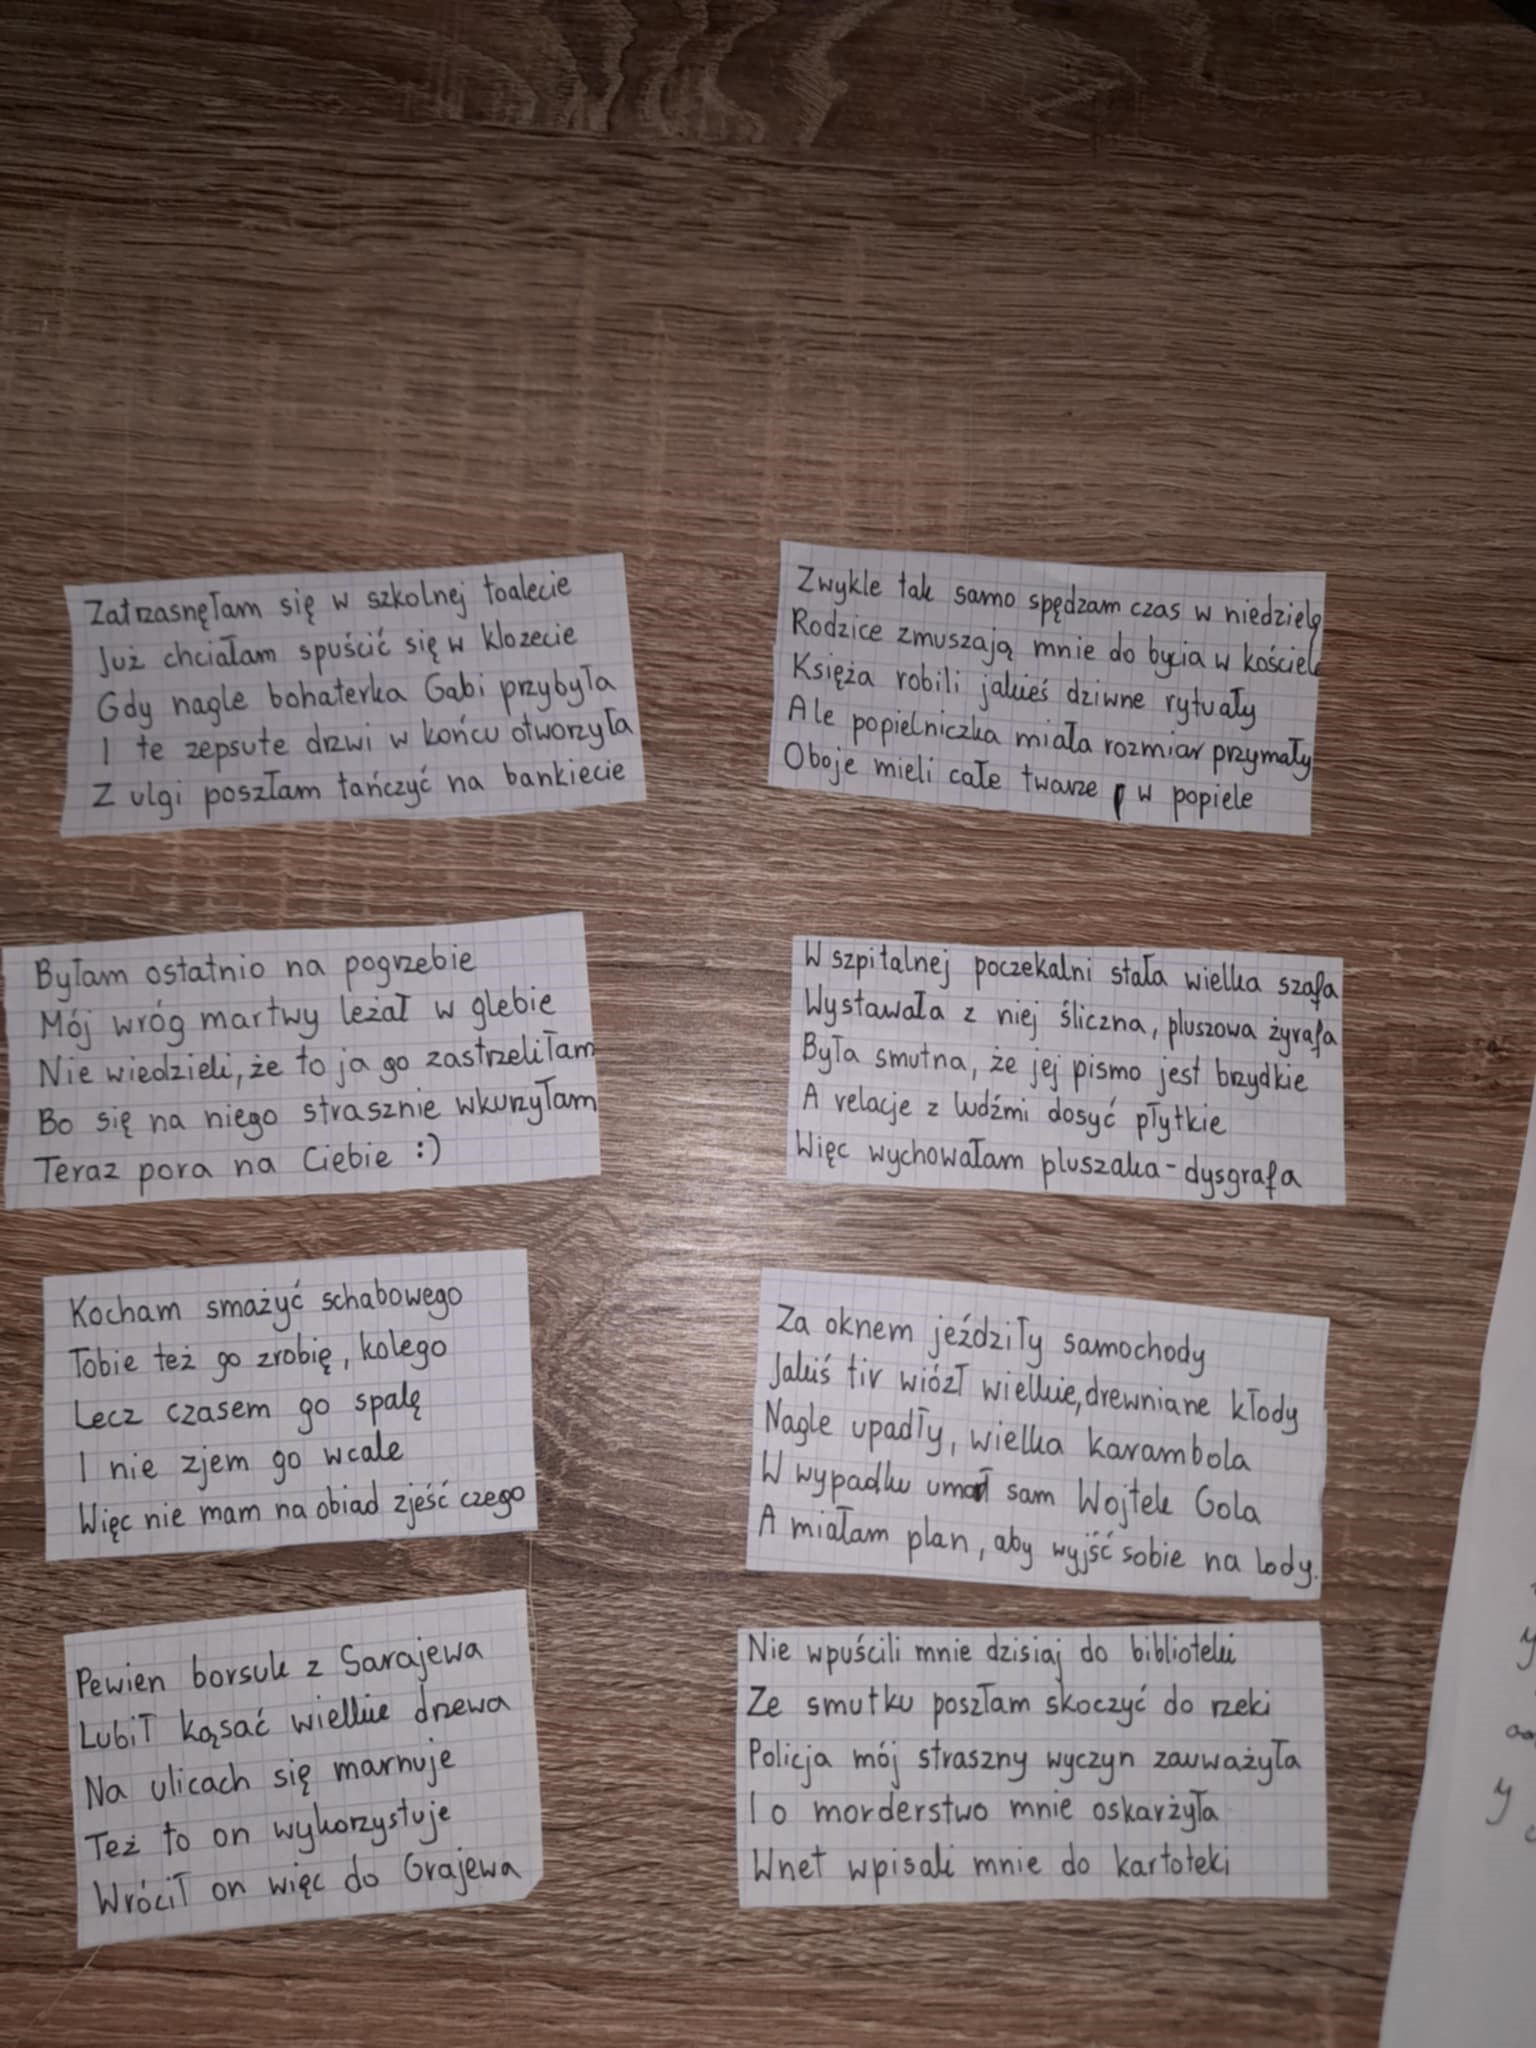 Zatrzasnęłam się w szkolnej toalecie
Już chciałam spuścić się w klozecie
Gdy nagle bohaterka Gabi przybyła
I te zepsute drzwi w końcu otworzyła
Z ulgi poszłam tańczyć na bankiecie
Zwykle tak samo spędzam czas w niedzielę
Rodzice zmuszają mnie do bycia w kościele
Księża robili jakieś dziwne rytuały
Ale popielniczka miała rozmiar przymały
Oboje mieli całe twarze w popiele
Byłam ostatnio na pogrzebie
Mój wróg martwy leżał w glebie
Nie wiedzieli, że to ja go zastrzeliłam
Bo się na niego strasznie wkurzyłam
Teraz pora na Ciebie :)
W szpitalnej poczekalni stała wielka szafa
Wystawała z niej śliczna, pluszowa żyrafa
Była smutna, że jej pismo jest brzydkie
A relacje z ludźmi dosyć płytkie
Więc wychowałam pluszaka-dysgrafa
Kocham smażyć schabowego
Tobie też go zrobię, kolego
Lecz czasem go spalę
I nie zjem go wcale
Więc nie mam na obiad zjeść czego
Za oknem jeździły samochody
Jakiś tir wiózł wielkie, drewniane kłody
Nagle upadły, wielka karambola
W wypadku umarł sam Wojtek Gola
A miałam plan, aby wyjść sobie na lody.
Pewien borsuk z Sarajewa
Lubił kąsać wielkie drzewa
Na ulicach się marnuje
Też to on wykorzystuje
Wrócił on więc do Grajewa
Nie wpuścili mnie dzisiaj do biblioteki
Ze smutku poszłam skoczyć do rzeki
Policja mój straszny wyczyn zauważyła
I o morderstwo mnie oskarżyła
Wnet wpisali mnie do kartoteki